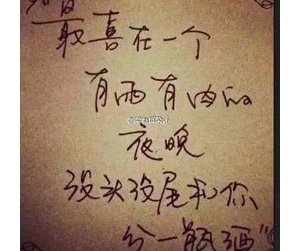 最喜在一个
有雨有肉的
夜晚
没头没尾和你
分一瓶酒"